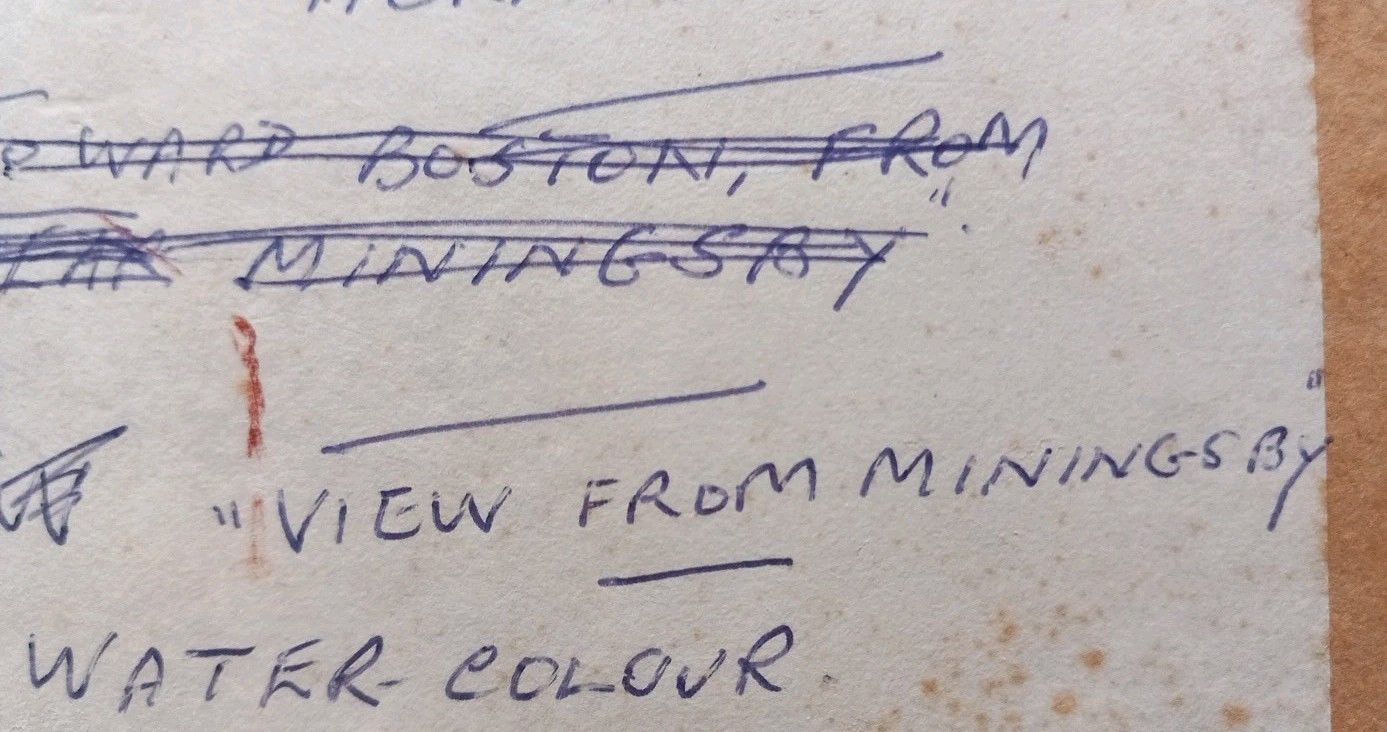 WARD BOSTON, FROM
MININGSBY".
"VIEW FROM MININGSBY"
WATER-COLOUR.